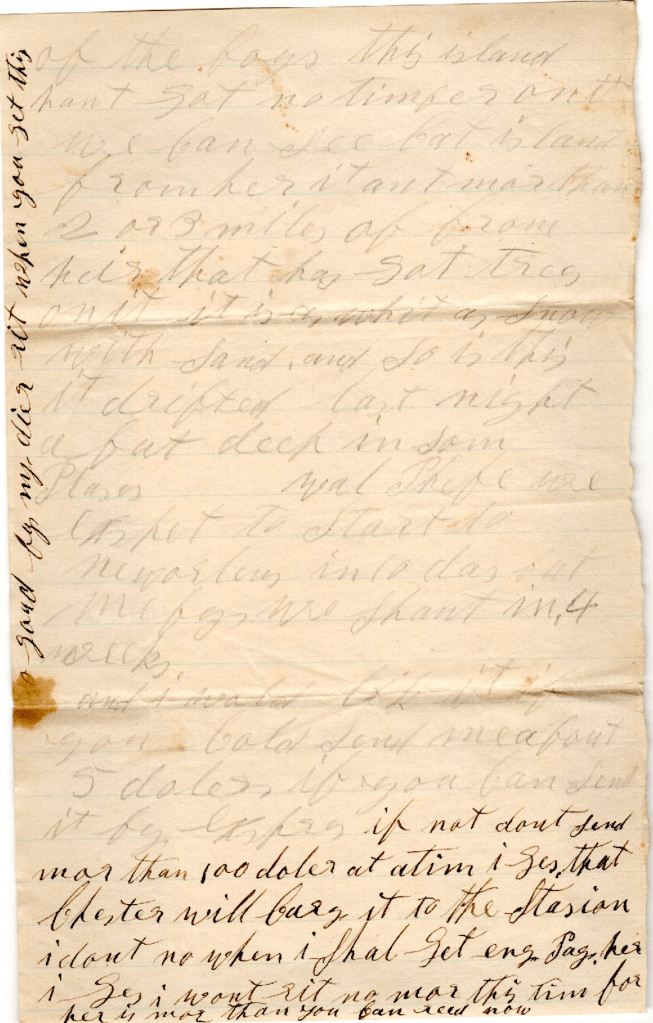 of the boys this island
hant got no timper on it
we can see cat island
from her it ant mor than
2 or 3 miles of from
heir that has got tres
on it it is as whit as snow
with sand and so is this
it drifted last night
a fut deep in som
Plases wal Phebe we
Expet to Start to
neworlens in 10 das but
me bys we shant in 4
weeks
and i would lik it if
you cold send me about
5 dolers if you can send
it by Expres if not dont send
mor than 100 doler at a tim i ges that
Chester will cary it to the Stasion
i dont no when i shal get eny Pay her
i ges i wont rit no mor this tim for
her is mor than you can reed now
good by my dier rit when you get this